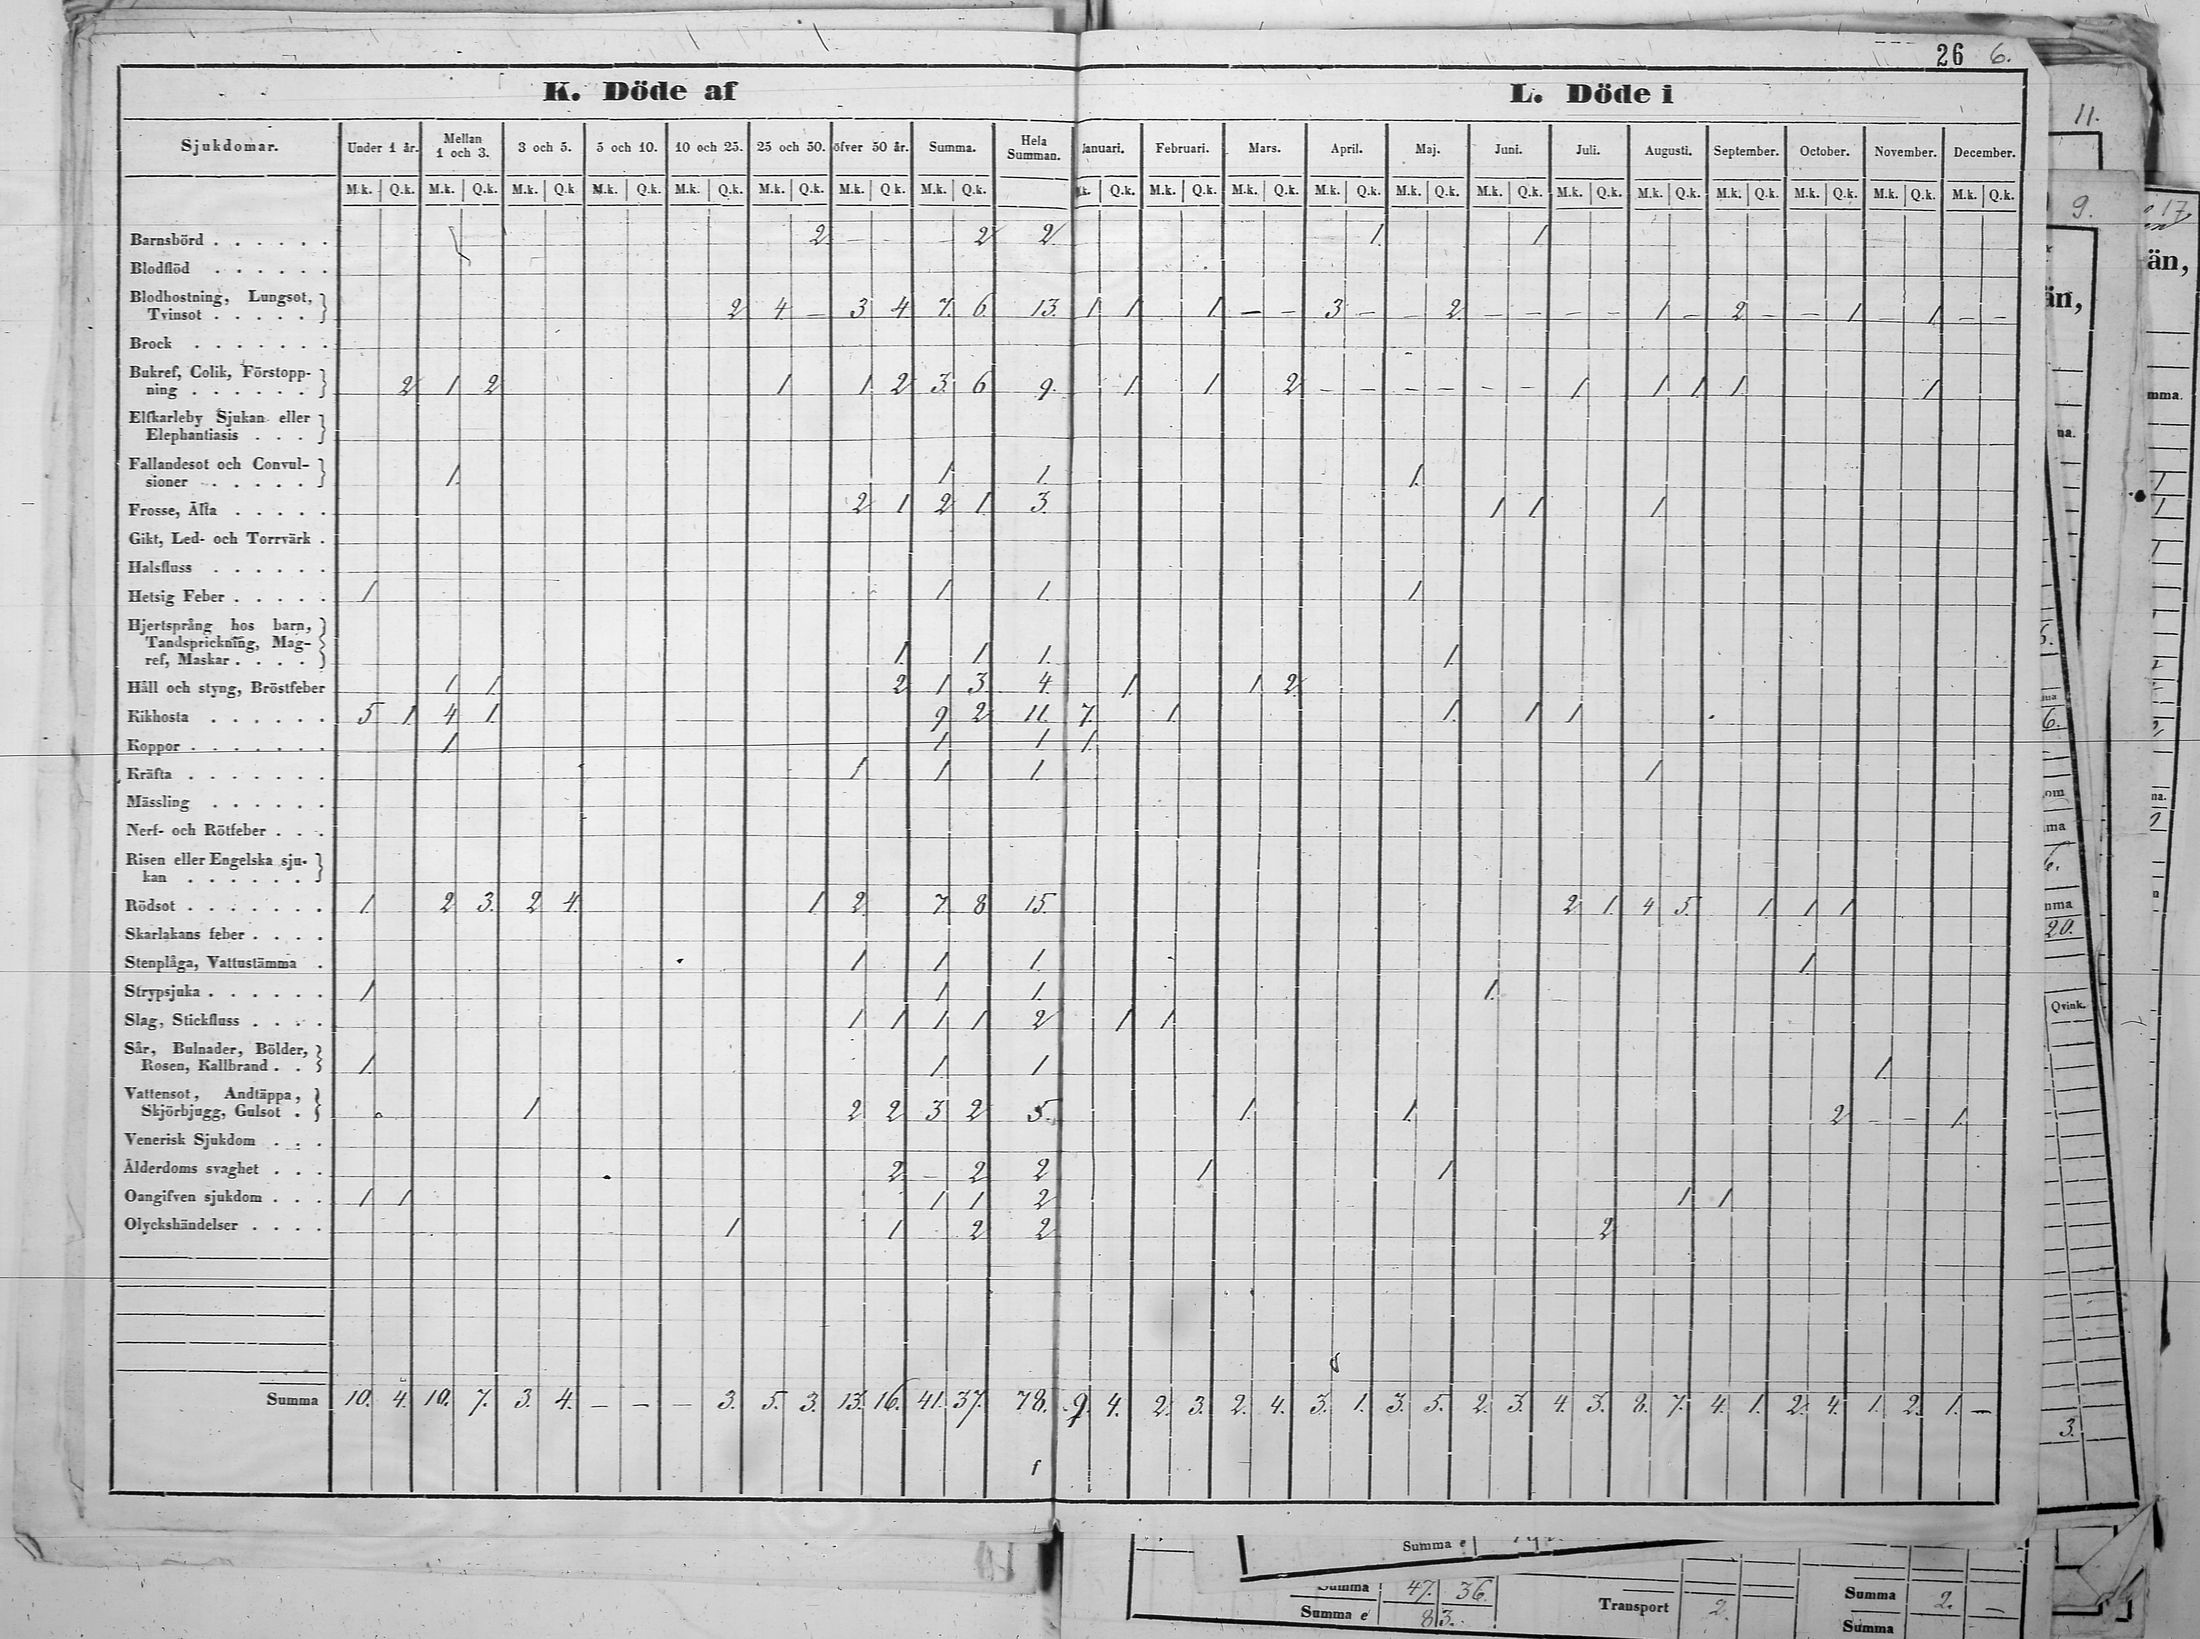 26 6.
K. Döde af L. Döde i
Sjukdomar. Under 1 år. Mellan 1 och 3. 3 och 5. 5 och 10. 10 och 25. 25 och 50. öfver 50 år. Summa. Hela Summan. Januari. Februari. Mars. April. Maj. Juni. Juli. Augusti. September. October. November. December.
M.k. Q.k. M.k. Q.k. M.k. Q.k M.k. Q.k. M.k. Q.k. M.k. Q.k. M.k. Q.k. M.k. Q.k. M.k. Q.k. M.k. Q.k. M.k. Q.k. M.k. Q.k. M.k. Q.k. M.k. Q.k. M.k. Q.k. M.k. Q.k. M.k. Q.k. M.k. Q.k. M.k. Q.k. M.k. Q.k.
Barnsbörd . . . . . . 2 – – – 2 2 1. 1
Blodflöd . . . . . .
Blodhostning, Lungsot,
Tvinsot . . . . . 2 4 – 3 4 7. 6. 13. 1 1 1 – – 3 – – 2. – – – – 1 – 2 – – 1 – 1. – –
Brock . . . . . . .
Bukref, Colik, Förstopp-
ning . . . . . . 2 1 2 1 1 2 3. 6 9. 1 1 2 – – – – – – 1 1 1. 1 1
Elfkarleby Sjukan eller
Elephantiasis . . .
Fallandesot och Convul-
sioner . . . . . 1. 1 1 1.
Frosse, Älta . . . . . 2 1 2 1 3. 1 1 1
Gikt, Led- och Torrvärk .
Halsfluss . . . . . .
Hetsig Feber . . . . . 1 1 1. 1
Hjertsprång hos barn,
Tandsprickning, Mag-
ref, Maskar . . . . 1. 1 1. 1
Håll och styng, Bröstfeber 1 1 2 1 3 4 1. 1 2.
Kikhosta . . . . . . 5 1 4 1 9 2 11. 7. 1 1. 1 1
Koppor . . . . . . . 1 1 1 1
Kräfta . . . . . . . 1 1 1 1
Mässling . . . . . .
Nerf- och Rötfeber . . .
Risen eller Engelska sju-
kan . . . . . .
Rödsot . . . . . . . 1. 2 3. 2 4. 1 2. 7 8 15. 2 1. 4 5. 1. 1 1
Skarlakans feber . . . .
Stenplåga, Vattustämma . 1 1 1. 1.
Strypsjuka . . . . . . 1 1 1. 1.
Slag, Stickfluss . . . . 1 1 1 1 2 1 1
Sår, Bulnader, Bölder,
Rosen, Kallbrand . . 1. 1. 1 1.
Vattensot, Andtäppa,
Skjörbjugg, Gulsot . 1 2 2 3 2 5. 1. 1. 2 – – 1.
Venerisk Sjukdom . . .
Ålderdoms svaghet . . . 2 – 2 2 1 1
Oangifven sjukdom . . . 1 1 1 1 2 1 1
Olyckshändelser . . . . 1 1 2 2 2
Summa 10. 4. 10. 7. 3. 4. – – – 3. 5. 3. 13. 16. 41. 37. 78. 9. 4. 2. 3. 2. 4. 3. 1. 3. 5. 2. 3. 4. 3. 8. 7. 4. 1. 2. 4. 1. 2. 1. –
11.
9.
17
än,
än,
mma.
na.
Qvink.
20.
3.
Summa e
Summa 47. 36.
Summa e 83.
Transport 2.
Summa 2. –
Summa